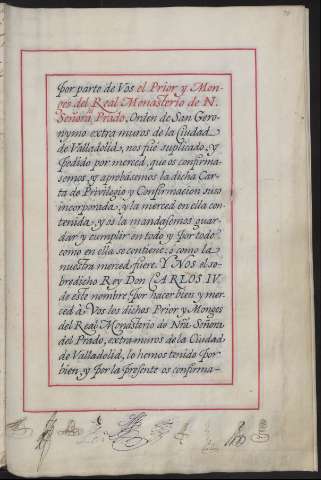 por parte de Vos el Prior y Mon-
ges del Real Monasterio de N.
Señora, Prado, Orden de San Gero-
nymo extra muros de la Ciudad
de Valladolid, nos fué suplicado, y
pedido por merced, que os confirma-
semos, y aprobásemos la dicha Car-
ta de Privilegio y Confirmacion suso
incorporada, y la merced en ella con-
tenida, y os la mandasemos guar-
dar y cumplir en todo y por todo
como en ella se contiene, ó como la
nuestra merced fuere. Y Nos el so-
bredicho Rey Don CARLOS IV.
de este nombre por hacer bien y mer-
ced à Vos los dichos Prior, y Monges
del Real Monasterio de Nra Señora
del Prado, extra muros de la Ciudad
de Valladolid, lo hemos tenido por
bien, y por la presente os confirma-